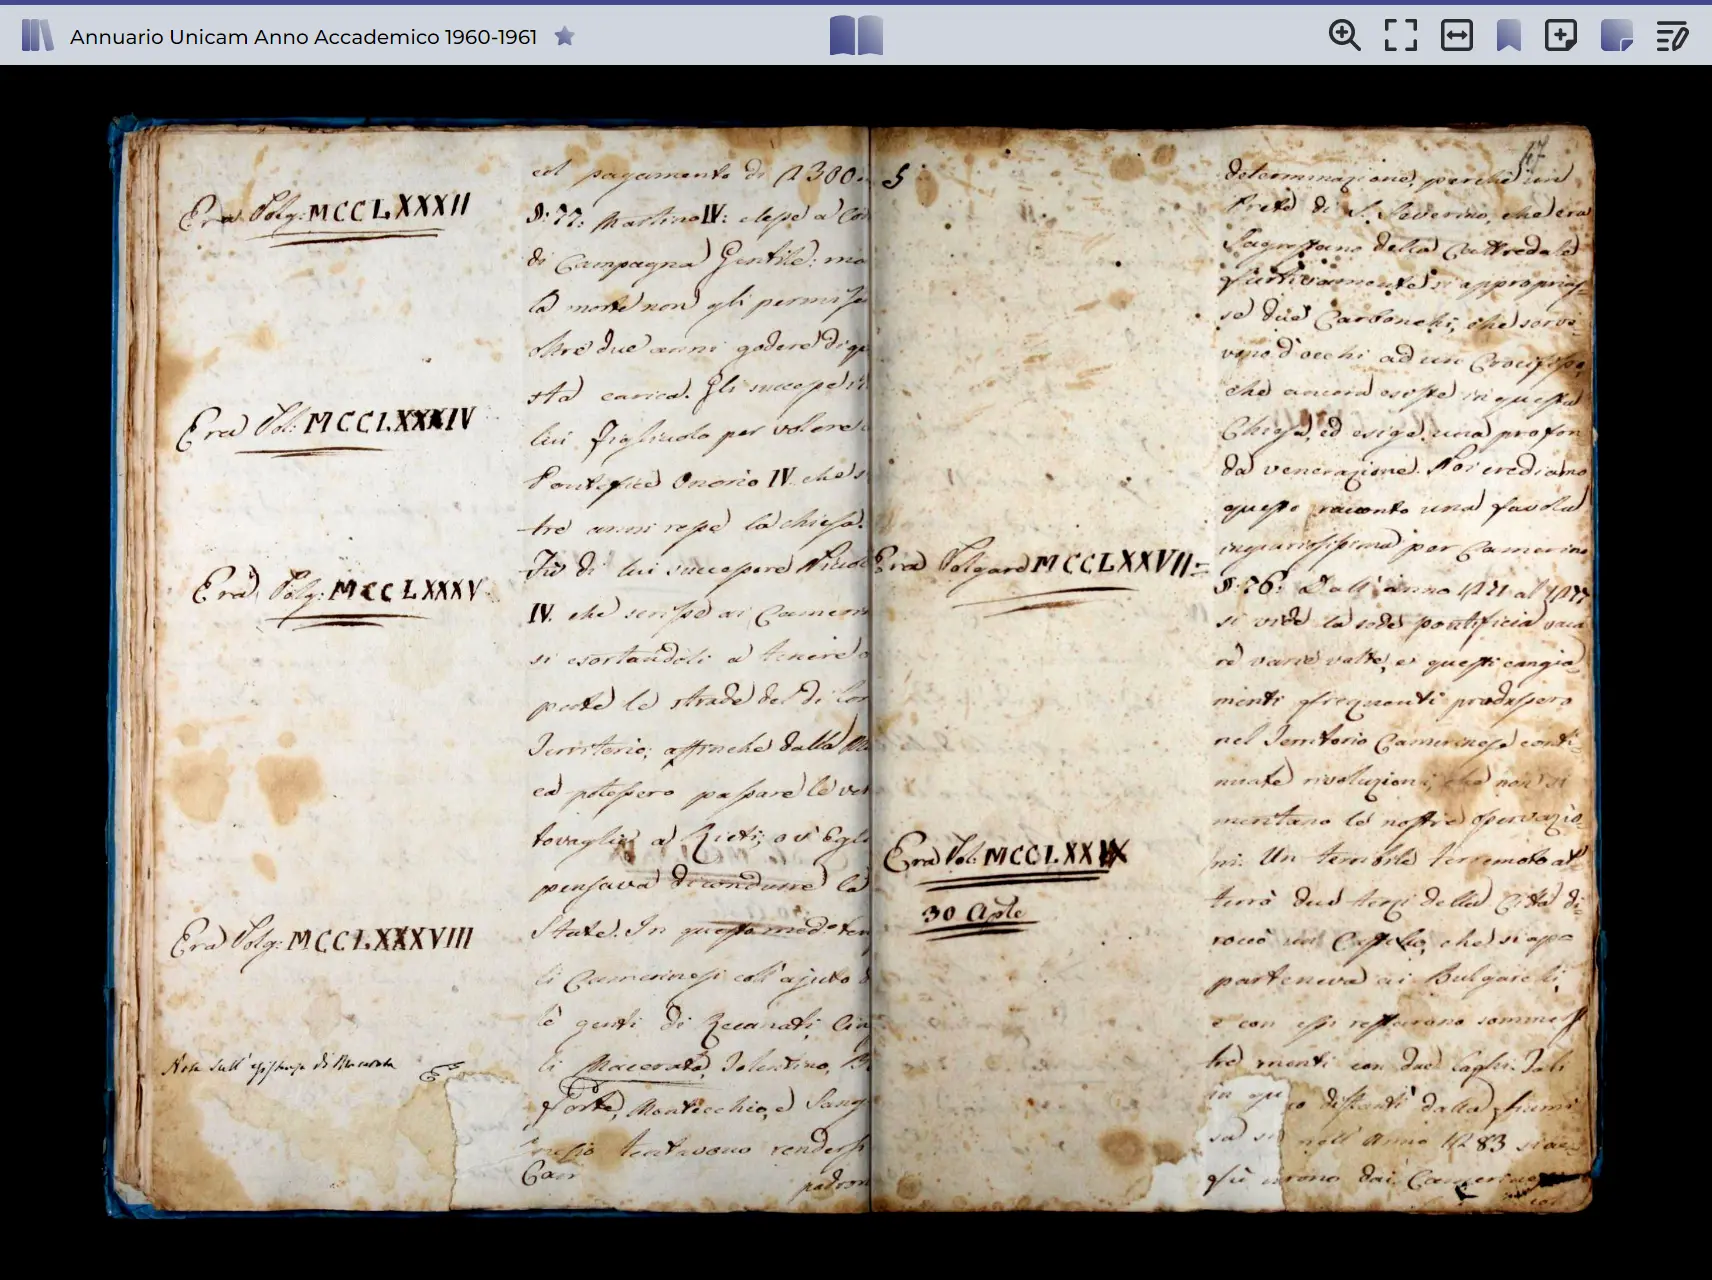 Annuario Unicam Anno Accademico 1960-1961
Era Volg: MCCLXXXII
Era Vol: MCCLXXXIV
Era Volg: MCCLXXXV
Era Volg: MCCLXXXVIII
Nota sull' esistenza di Macerata
col pagamento di
§:77: Martino IV: elesse a
di Campagna Gentile: ma
la morte non gli permise
oltre due anni godere di
sta carica. Gli successe
lui figliuolo per volere
Pontefice Onorio IV che
tre anni resse la chiesa.
di lui successore
IV. che scrisse ai
si esortandoli a tenere
le strade del di
Territorio; affinche dalla
ca potessero passare le
tovaglie a Rieti; ov' Egli
pensava di condurre la
State. In questo
li Camerinesi coll' ajuto
le genti di Recanati,
li Macerata, Tolentino,
Forte, Montecchio, e
tentavano
padron
§
47
Era Volgare MCCLXXVII
Era Vol: MCCLXXIX
30 Aple
determinazione, perchè un
Prete di S. Severino, che era
Sagrestano della Cattredale
furtivamente si appropriass
se due Carbonchi, che servi
vano d'occhi ad un Crocifisso,
che ancora esiste in questa
Chiesa, ed esige una profon
da venerazione. Noi crediamo
questo racconto una favola
ingiuriosissima per Camerino
§:76: Dall' anno 1271 al 1277
si vide la sede pontificia vaca
re varie volte, e questi cangia
menti frequenti produssero
nel Territorio Camerinese conti-
nuate rivoluzioni, che non si
meritano le nostre osservazio-
ni. Un terribile terremoto at-
terrò due terzi della Città di-
roccò un Castello, che si ap
parteneva ai Bulgarelli,
e con essi restarono sommers
tre monti con due Laghi. Tali
in distanti dalla
nell' Anno 1283
dai